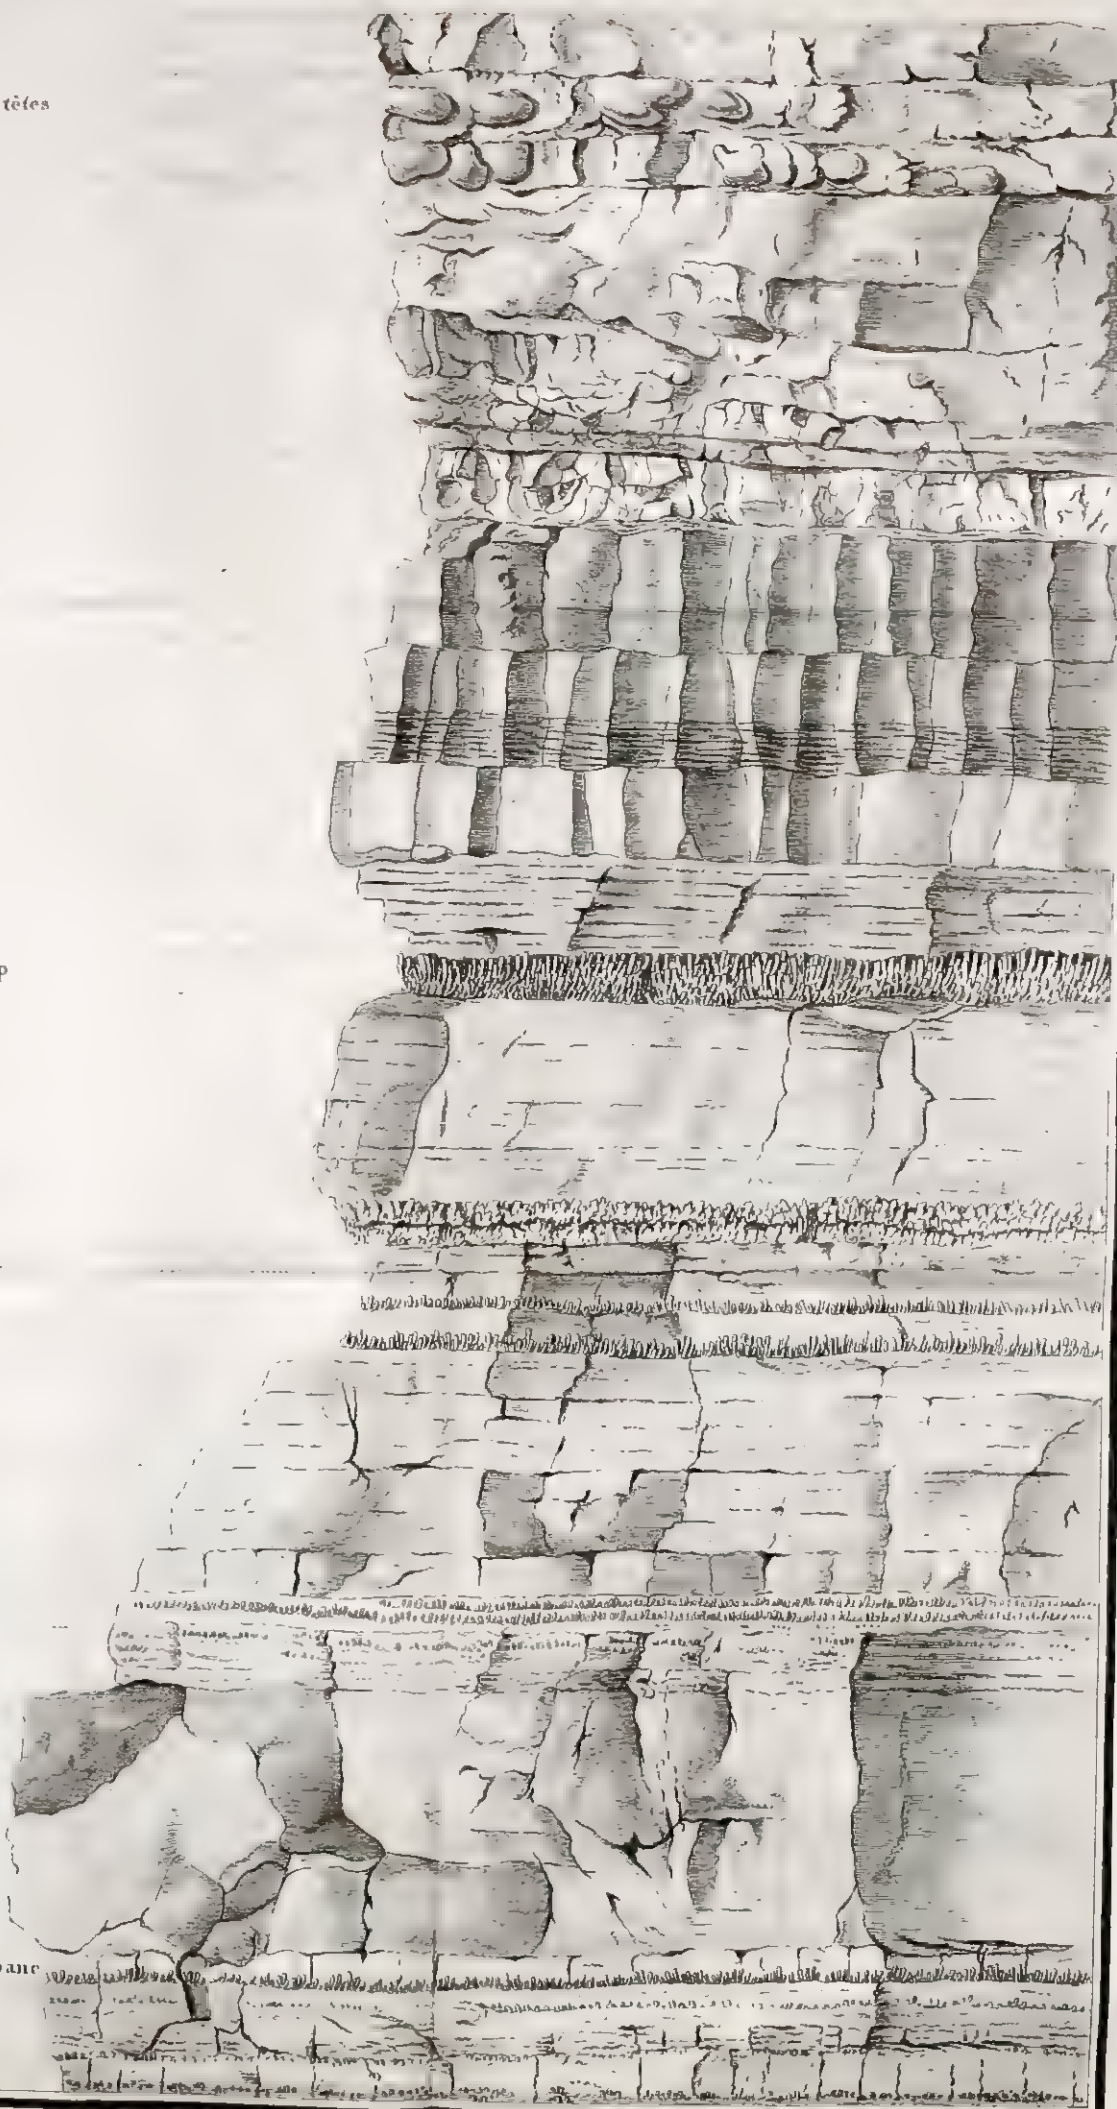 têtes
p
banc